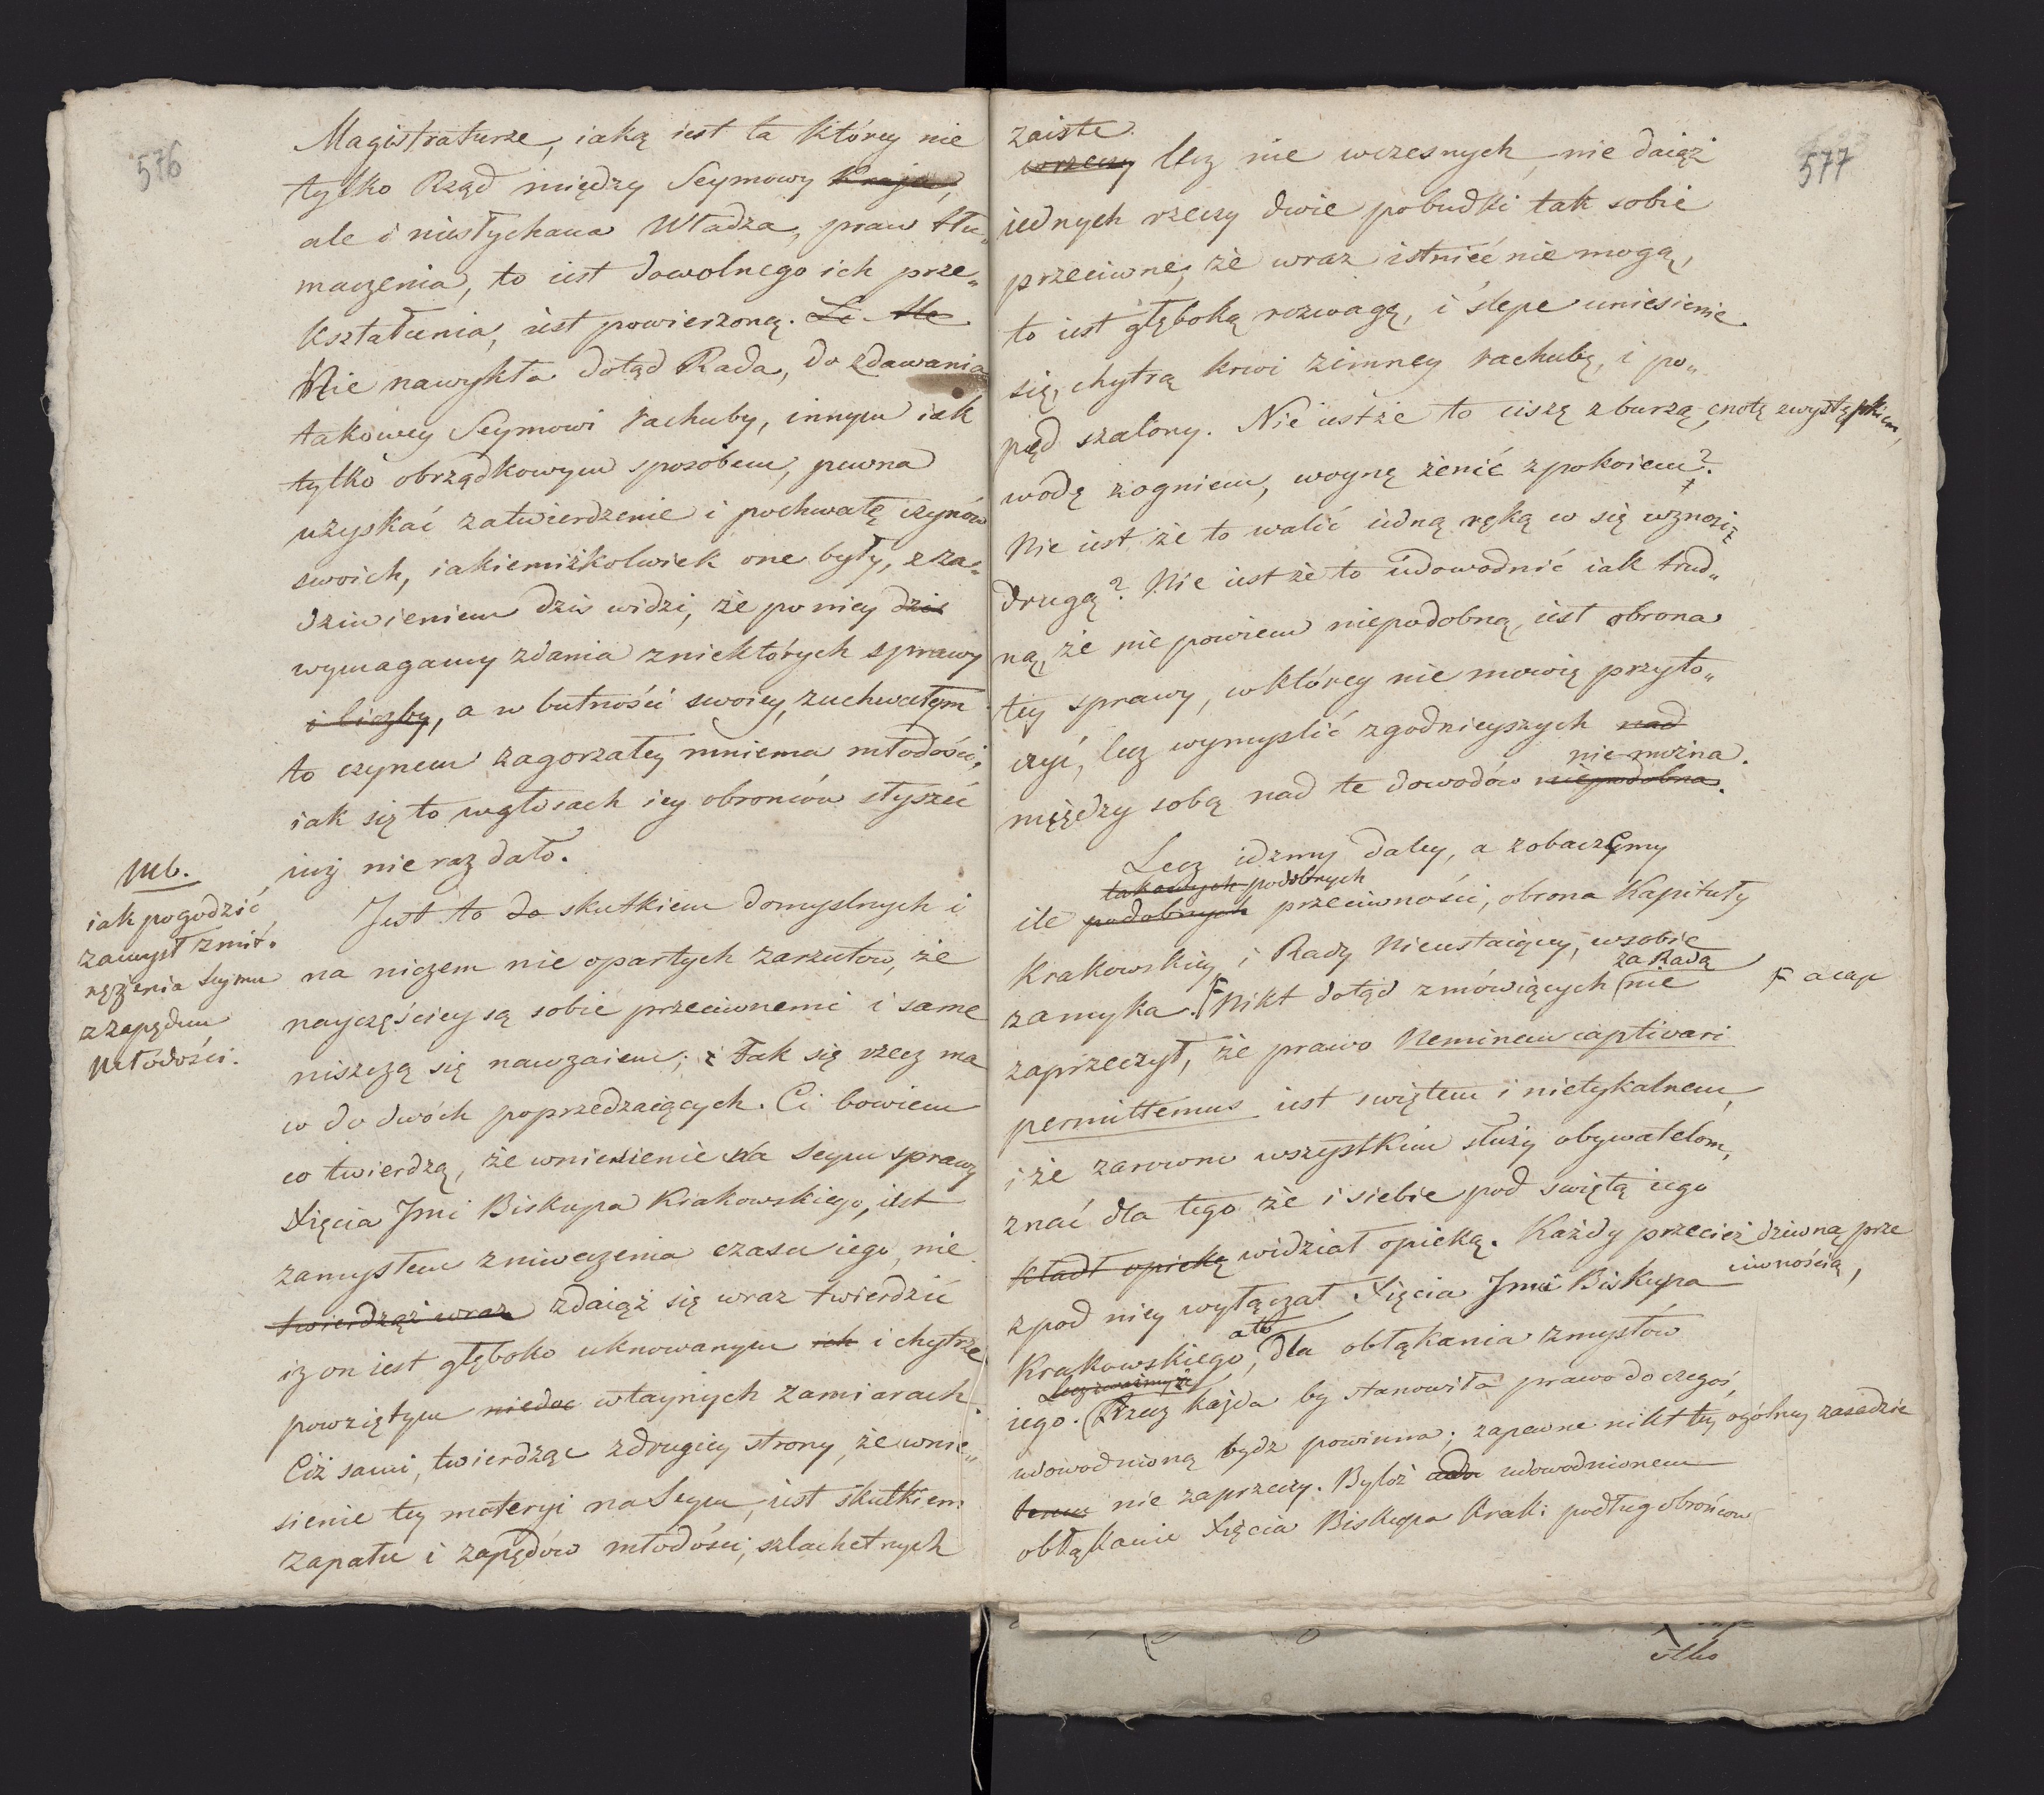 576
Magistraturze, iaką iest ta którey nie
tylko Rząd między Seymowy Kraju,
ale i niesłychana Władza, praw tłu„
maczenia, to iest dowolnego ich prze„
kształcenia, iest powierzoną.
Nie nawykła dotąd Rada, do zdawania
takowey Seymowi rachuby, innym iak
tylko obrządkowym sposobem, pewna
uzyskać zatwierdzenie i pochwałę czynów
swoich, iakiemiżkolwiek one były, z za„
dziwieniem dziś widzi, że po niey dziś
wymagamy zdania z niektórych sprawy
i liczby, a w butności swoiey, zuchwałym
to czynem zagorzałey mniema młodości,
iak się to w głosach iey obrońców słyszeć
iuż nie raz dało.
Nb.
iak pogodzić
zamysł zmit.
ręzenia Seymu
z zapędem
Młodości.
Jest to do skutkiem domyslnych i
na niczem nie opartych zarzutow, że
nayczęściey są sobie przeciwnemi i same
niszczą się nawzaiem; i Tak się rzecz ma
w do dwóch poprzedzaiących. Ci bowiem
co twierdzą, że wniesienie na Seym sprawy
Xięcia Jmi Biskupa Krakowskiego, iest
zamysłem zniweczenia czasu iego, nie
twierdząż wraz zdaiąż się wraz twierdzić
iż on iest głęboko uknowanym ich i chytrze
powziętym w taynych zamiarach.
Ciż sami, twierdząc z drugiey strony, że wnie„
sienie tey materyi na Seym, iest skutkiem
zapału i zapędów młodości, szlachetnych
577
zaiste
wrzeczy lecz nie wczesnych, nie daiąż
iednych rzeczy dwie pobudki tak sobie
przeciwne, że wraz istnieć nie mogą,
to iest głęboką rozwagę, i ślepe uniesienie
się, chytrą krwi zimney rachubę, i po„
pęd szalony. Nie iestże to ciszę z burzą, cnotę z występkiem,
wodę z ogniem, woynę żenić z pokoiem?
Nie iest że to walić iedną ręką co się wznosi
drugą? Nie iest że to udowodnić iak trud„
ną, że nie powiem niepodobną, iest obrona
tey sprawy, w którey nie mowię przyto„
czyć, lecz wymyslić zgodnieyszych nad
nie można.
między sobą nad te dowodów niepodobna.
Lecz idzmy daley, a zobaczymy
takowych podobnych
ile podobnych przeciwności, obrona Kapituły
Krakowskiey i Rady Nieustaiącey, w sobie
za Radą
zamyka. F Nikt dotąd z mówiących nie F a cap
zaprzeczył, że prawo Neminem captivari
permittemus iest swiętem i nietykalnem,
i że zarowno wszystkim służy obywatelom,
znać dla tego że i siebie pod swiętą iego
kładł opieką widział opieką. Każdy przecież dziwną prze
ciwnością,
z pod niey wyłączał Xięcia Jmi Biskupa
a to
Krakowskiego, dla obłąkania zmysłów
iego. Rzecz każda by stanowiła prawo do czegoś,
udowodnioną bydz powinna; zapewne nikt tey ogólney zasadzie
temu nie zaprzeczy. Byłoż udowodnionem
obłąkanie Xięcia Biskupa Krak: podług obrońców